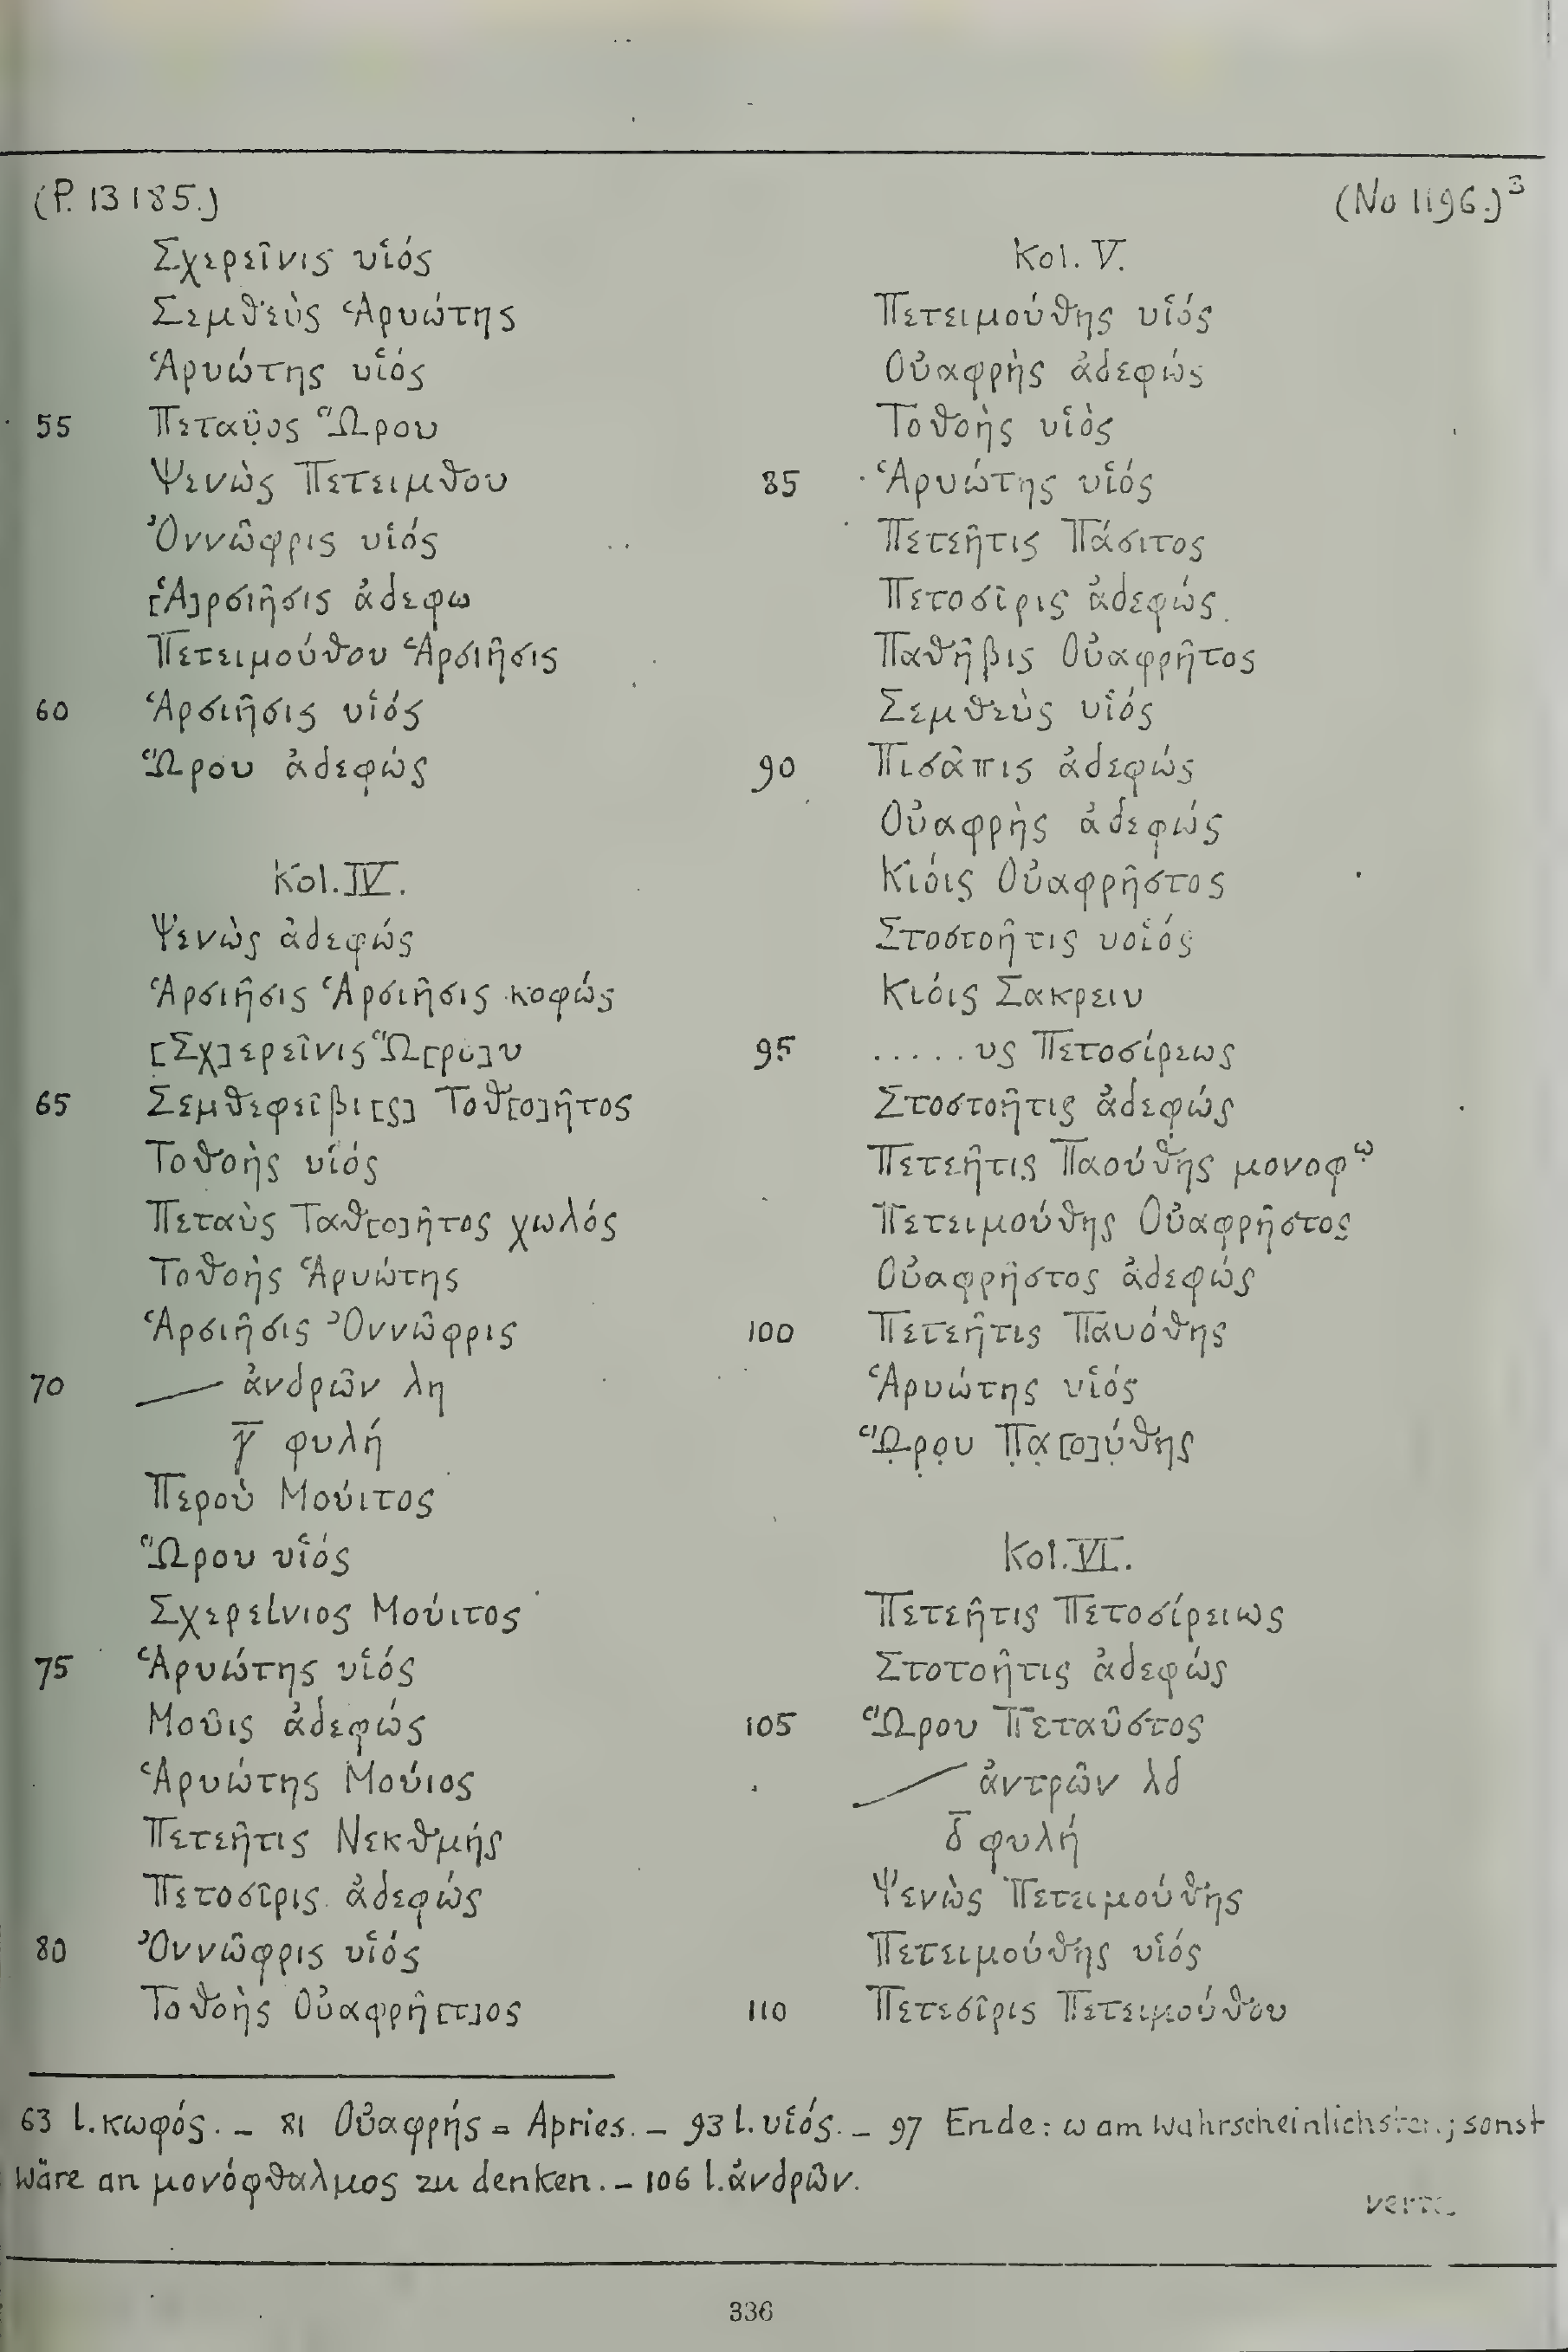 (P. 13185.)
(No 1196.)³
Σχερεῖνις υἱός
Σεμθεὺς Ἁρυώτης
Ἁρυώτης υἱός
55 Πεταῦ̣ος Ὥρου
Ψενὼς Πετειμθου
Ὀννῶφρις υἱός
[Ἁ]ρσιῆσις ἀδεφω
Πετειμούθου Ἁρσιῆσις
60 Ἁρσιῆσις υἱός
Ὥρου ἀδεφώς
Kol. IV.
Ψενὼς ἀδεφώς
Ἁρσιῆσις Ἁρσιῆσις κοφώς
[Σχ]ερεῖνις Ὥ[ρο]υ
65 Σεμθεφεῖβι[ς] Τοθ[ο]ῆτος
Τοθοὴς υἱός
Πεταὺς Ταθ[ο]ῆτος χωλός
Τοθοὴς Ἁρυώτης
Ἁρσιῆσις Ὀννῶφρις
70 — ἀνδρῶν λη
γ̅ φυλή
Περοὺ Μούιτος
Ὥρου υἱός
Σχερείνιος Μούιτος
75 Ἁρυώτης υἱός
Μοῦις ἀδεφώς
Ἁρυώτης Μούιος
Πετεῆτις Νεκθμής
Πετοσῖρις ἀδεφώς
80 Ὀννῶφρις υἱός
Τοθοὴς Οὐαφρῆ[τ]ος
Kol. V.
Πετειμούθης υἱός
Οὐαφρὴς ἀδεφώς
Τοθοὴς υἱὸς
85 Ἁρυώτης υἱός
Πετεῆτις Πάσιτος
Πετοσῖρις ἀδεφώς
Παθῆβις Οὐαφρῆτος
Σεμθεὺς υἱός
90 Πισᾶπις ἀδεφώς
Οὐαφρὴς ἀδεφώς
Κιόις Οὐαφρῆστος
Στοστοῆτις υοἱός
Κιόις Σακρειυ
95 .....υς Πετοσίρεως
Στοστοῆτις ἀδεφώς
Πετεῆτις Παούθης μονοφω̣
Πετειμούθης Οὐαφρῆστος
Οὐαφρῆστος ἀδεφώς
100 Πετεῆτις Παυόθης
Ἁρυώτης υἱός
Ὥ̣ρ̣ο̣υ Π̣α̣[ο]ύ̣θης
Kol. VI.
Πετεῆτις Πετοσίρειως
Στοτοῆτις ἀδεφώς
105 Ὥρου Πεταῦστος
— ἀντρῶν λδ
δ̅ φυλή
Ψενὼς Πετειμούθης
Πετειμούθης υἱός
110 Πετεσῖρις Πετειμούθου
63 l. κωφός. – 81 Οὐαφρής = Apries. – 93 l. υἱός. – 97 Ende: ω am wahrscheinlichsten; sonst
wäre an μονόφθαλμος zu denken. – 106 l. ἀνδρῶν.
336